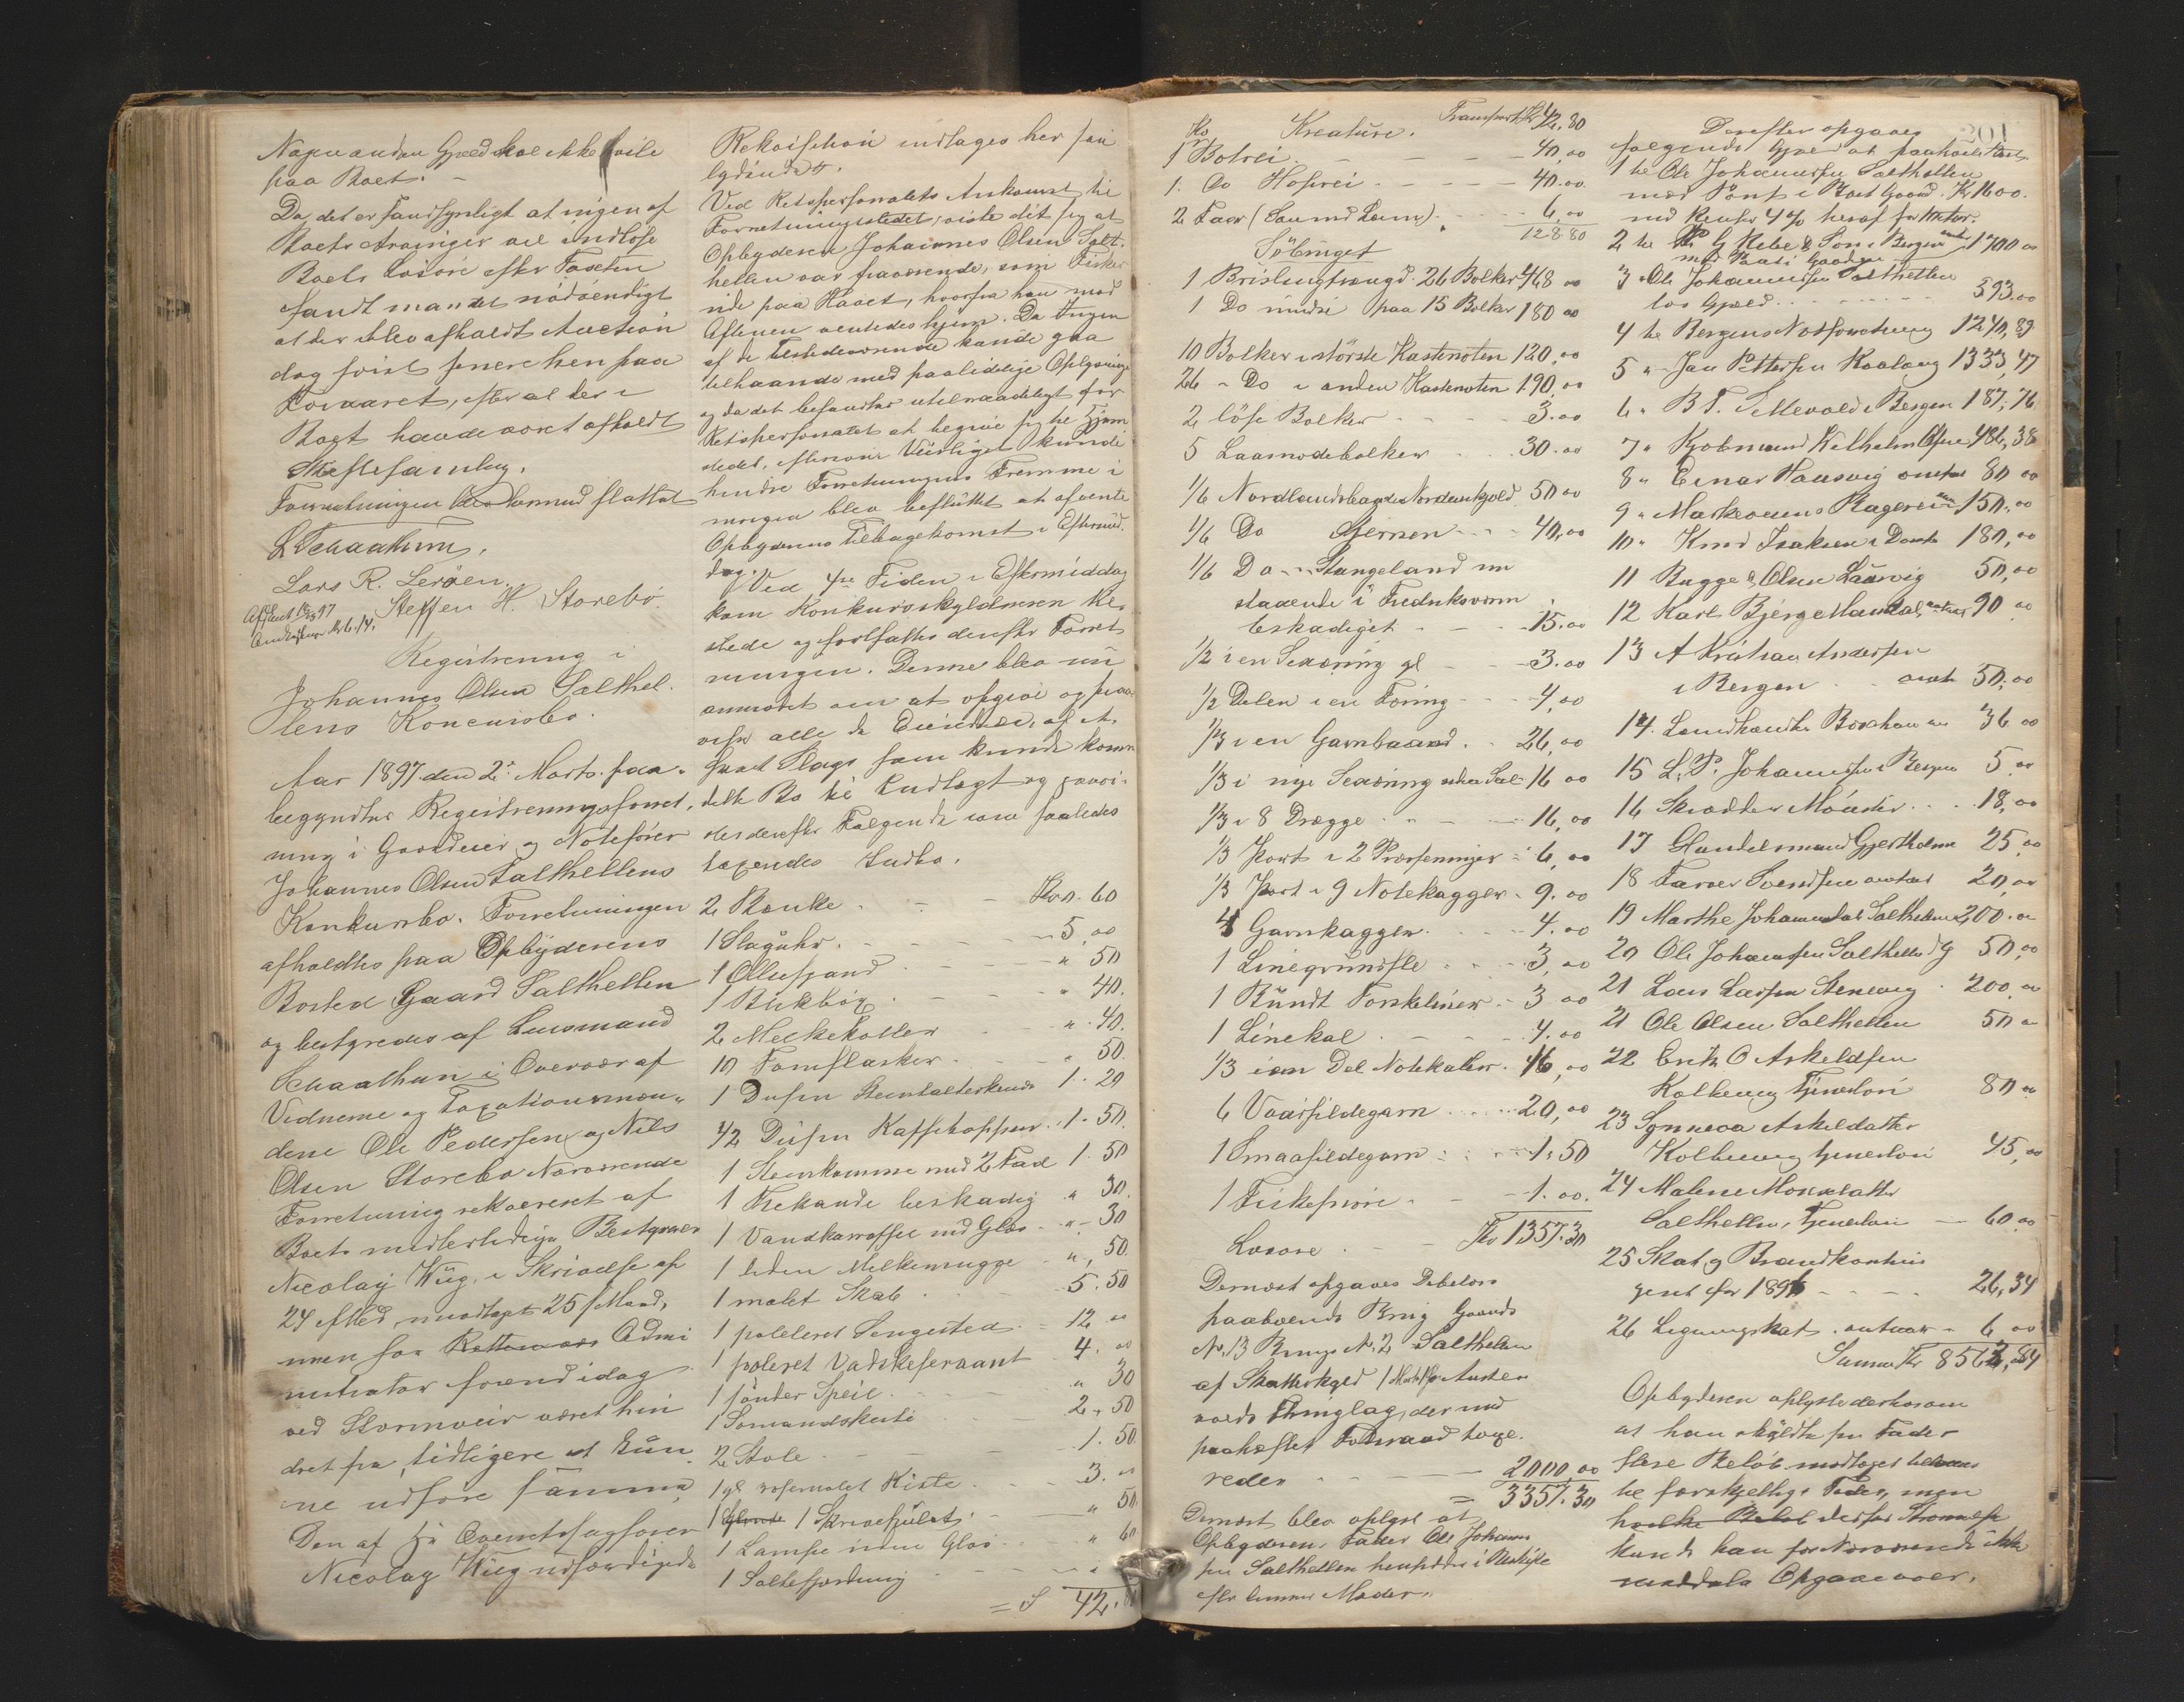 Nogen anden Gjæld skal ikke hvile
paa Boet. –
Da det er sandsynligt at ingen af
Boets Arvinger vil indløse
Boets Løsøre efter Taxten
fandt man det nödvendigt
at der blev afholdt Auction
dog först senere hen paa
Foraaret, efter at der i
Boet havde været afholdt
Skiftesamling.
Forretningen dermed sluttet
L Schaathun,
Lars R. Leröen.
Steffen H. Storebö.
Registrering i
Johannes Olsen Salthel-
lens Konkursbo.
Aar 1897 den 2. Marts paa-
begyndtes Registreringsforret-
ning i Gaardeier og Notefører
Johannes Olsen Salthellens
Konkursbo. Forretningen
afholdtes paa Opbyderens
Bosted Gaard Salthellen
og bestyredes af Lensmand
Schaathun i Overvær af
Vidnerne og Taxationsmæn-
dene Ole Pedersen og Nils
Olsen Storebø Nærværende
Forretning rekvireret af
Boets midlertidige Bestyrer
Nicolay Wiig, i Skrivelse af
24 f Md, modtaget 25 f Maaned,
men for Rettens Admi
nistrator forend idag
ved Stormveir været hin
dret fra tidligere at kun-
ne udföre samme,
Den af Hr Overretssagfører
Nicolay Wiig udfærdigede
Rekvisition indtages her saa
lydende:
Ved Retspersonalets Ankomst til
Forretningsstedet, viste det sig at
Opbyderen Johannes Olsen Salt-
hellen var fraværende, som Fisker
ude paa Havet, hvorfra han mod
Aftenen ventedes hjem. Da Ingen
af de tilstedeværende kunde gaa
tilhaande med paalidelige Oplysninger
og da det befandtes utilraadeligt for
Retspersonalet at begive sig til Hjem
stedet, eftersom Veirliget kunde
hindre Forretningens Fremme i
morgen blev besluttet at afvente
Opbyderens Tilbagekomst i Eftermid-
dag.
Ved 4re Tiden i Eftermiddag
kom Konkursskyldneren til
stede og fortsattes derefter Forret
ningen. Denne blev nu
anmodet om at opgive og paa-
vise alle de Eiendele, af et-
hvert Slags som kunde komme
dette Bo til Indtægt og paavi-
stes derefter Følgende som saaledes
taxeredes Indbo.
2 Bænke . – – Kr 0. 60
1 Slaguhr. – – 5,00
1 Ollespand – " 50
1 Bükbög – " 40.
2 Melkekoller – " 40.
10 Tomflasker – " 50.
1 Dusin Steentallerkener 1. 20
1/2 Düsin Kaffekopper 1. 50.
1 Steenkomme med 2 Fad 1. 50
1 Thekande beskadig " 30.
1 Vandkaraffel med Glas " 30
1 liden Melkemugge " 50.
1 malet Skab 5. 50
1 poleleret Sengested 12 "
1 poleret Vadskeservant 4. 00
1 sönder Speil " 30
1 Sømandskiste 2, 50
2 Stole 1. 50
1 gl rosemalet Kiste 3. "
1 1 Skrivepulat " 50
1 Lampe uden Glas " 60
1 Saltefjerdung "
= S 42,
Transport Kr 42, 80
Kreature.
Ko
1 Botrei – 40,00
1. Do Hofrei – 40.00
2 Faar (Sau med Lam) 6,00
128 80
Söbruget
1 Brislingtraugd. 26 Bolker 468 00
1 Do mindre paa 15 Bolker 180 00
10 Bolker i störste Kastenoten 120,00
26 " Do i anden Kastenoten 190,00
2 löse Bolker – 3.00
5 Laasnodebolker 30.00
1/6 Nordlandsbaad Nordenkjold 50 00
1/6 Do Stjernen 40,00
1/6 Do Stangeland nu
staaende i Fredriksværn
beskadiget 15.00
1/2 i en Sexæring gl – 3.00
1/2 Delen i en Færing 4,00
1/3 i en Garnbaand 26,00
1/3 i nye Sexæring uden Seil 16 00
1/3 i 8 Drægge 16,00
1/3 Part i 2 Presenninger 6,00
1/3 Part i 9 Notekagger 9.00
4 Garnkagger 4.00
1 Linegrundsle 3,00
1 Bündt Torskeliner 3 00
1 Linekal 4.00
1/3 i en Del Notekabler 46,00
6 Vaarsildegarn 20,00
1 Smaasildegarn 1,50
1 Fiskesnöre 1.00.
Løsøre – Kr 1357.30
Dernæst opgaves Debitors
paaboende Brug Gaards
No. 13 Brugs No. 2 Salthellen
af Skatteskyld 1 Mark 18 Øre Auste-
volds Thinglag, der med
paahæftet Folraad taxe-
redes – 2000,00
= 3357.30
Dernæst blev oplyst at
Opbyderens Fader Ole Johann-
sen Salthellen hensidder i Uskifte
efter hennes Moder.
201
Derefter opgaves
følgende Gjæld at paahvile Boet
1 til Ole Johannessen Salthellen
med Pant i Boets Gaard. Kr 1600.
med Renter 4% heraf for tvende Aar.
2 til G Riber & Søn i Bergen 1700 00
med Pant i Gaarden
3 " Ole Johannessen Salthellen
løs Gjæld 393.00
4 til Bergens Notforretning 1240,89
5 " Jan Pettersen Kaalaug 1333,47
6 " B T. Tellevold i Bergen 187,76
7 " Kjøbmand Wilhelm Olsen 486,38
8 " Einar Haasvig omtr 80 00
9 " Markevens Bageri 150,00
10 " Knud Isaksen i Donte 180,00
11 Bugge & Olsen Laarvig 50,00
12 Karl Bjerge Mandal, omtr 90 00
13 A Kristian Andersen
i Bergen omtr 50,00
14 Landhandler Boxhaun 36 00
15 L. P. Johannesen Bergen 5 00
16 Skrædder Mönster 18,00
17 Handelsmand Gjertholm 25,00
18 Farver Svendsen omtr 20,00
19 Marthe Johannesdat Salthellen 200.00
20 Ole Johannesen Salthellen yg 50,00
21 Lars Larsen Stenevig 200,00
21 Ole Olsen Salthellen 50 00
22 Erik O Askeldsen
Kolbeneg Tjenerløn 80 00
23 Synneva Askeldatter
Kolbeneg tjenerløn 45,00
24 Malene Monsdatter
Salthellen, Tjenerløn 60,00
25 Skat, og Brandkontin
gent for 1896 26,34
26 Legningskat omtrent 6 00
Summa Kr 8562,84
Opbyderen oplyste derhos om
at han skyldte sin Fader
flere Beløb modtaget
til forskjellige Tider, men
hvilke Beløb derfor Størrelse
kunde han for Nærværende ikke
meddele Opgave over.